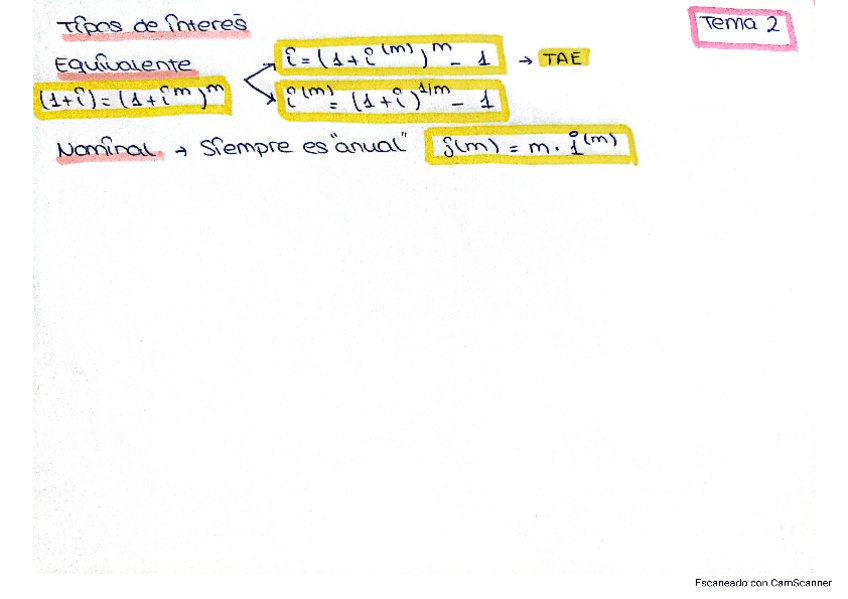 Tipos de interes
Tema 2
Equivalente
i = (1 + i^(m))^m - 1 → TAE
(1+i) = (1+i^m)^m
i^(m) = (1+i)^1/m - 1
Nominal → Siempre es "anual" j(m) = m · i^(m)
Escaneado con CamScanner